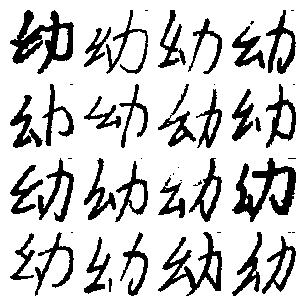 幼幼幼幼
幼幼幼幼
幼幼幼幼
幼幼幼幼